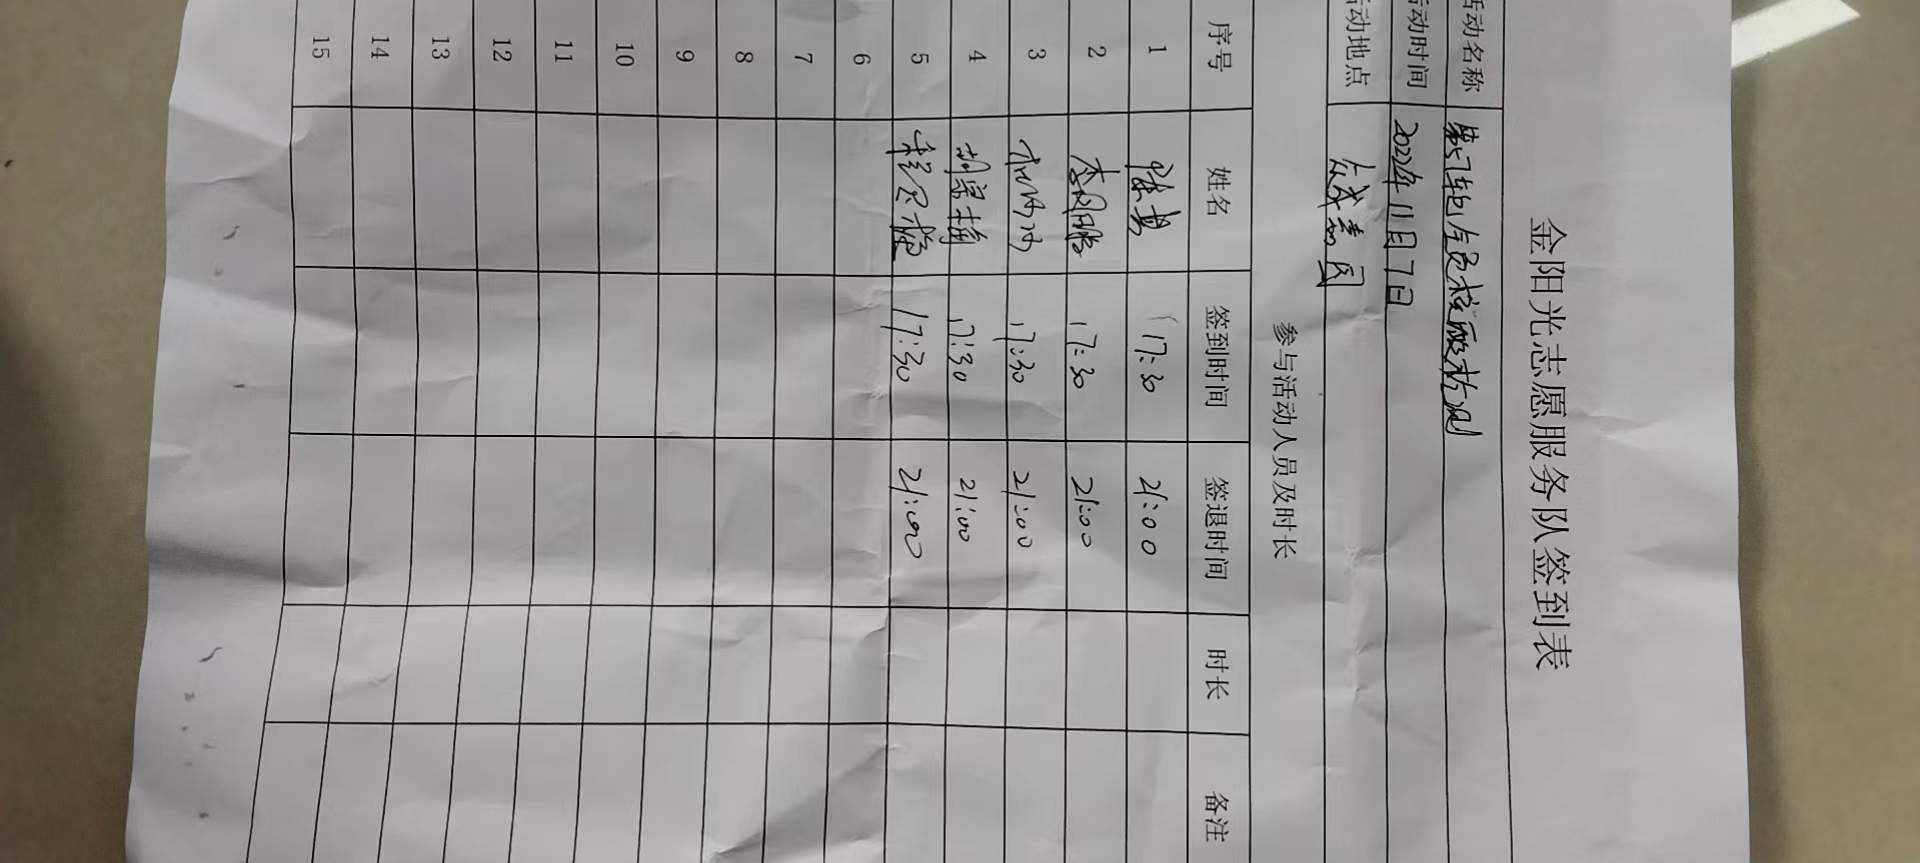 金阳光志愿服务队签到表
活动名称 第57轮全员核酸检测
活动时间 2022年11月7日
活动地点
参与活动人员及时长
序号 姓名 签到时间 签退时间 时长 备注
1 17:30 21:00
2 李同鹏 17:30 21:00
3 17:30 21:00
4 胡宗梅 17:30 21:00
5 17:30 21:00
6
7
8
9
10
11
12
13
14
15